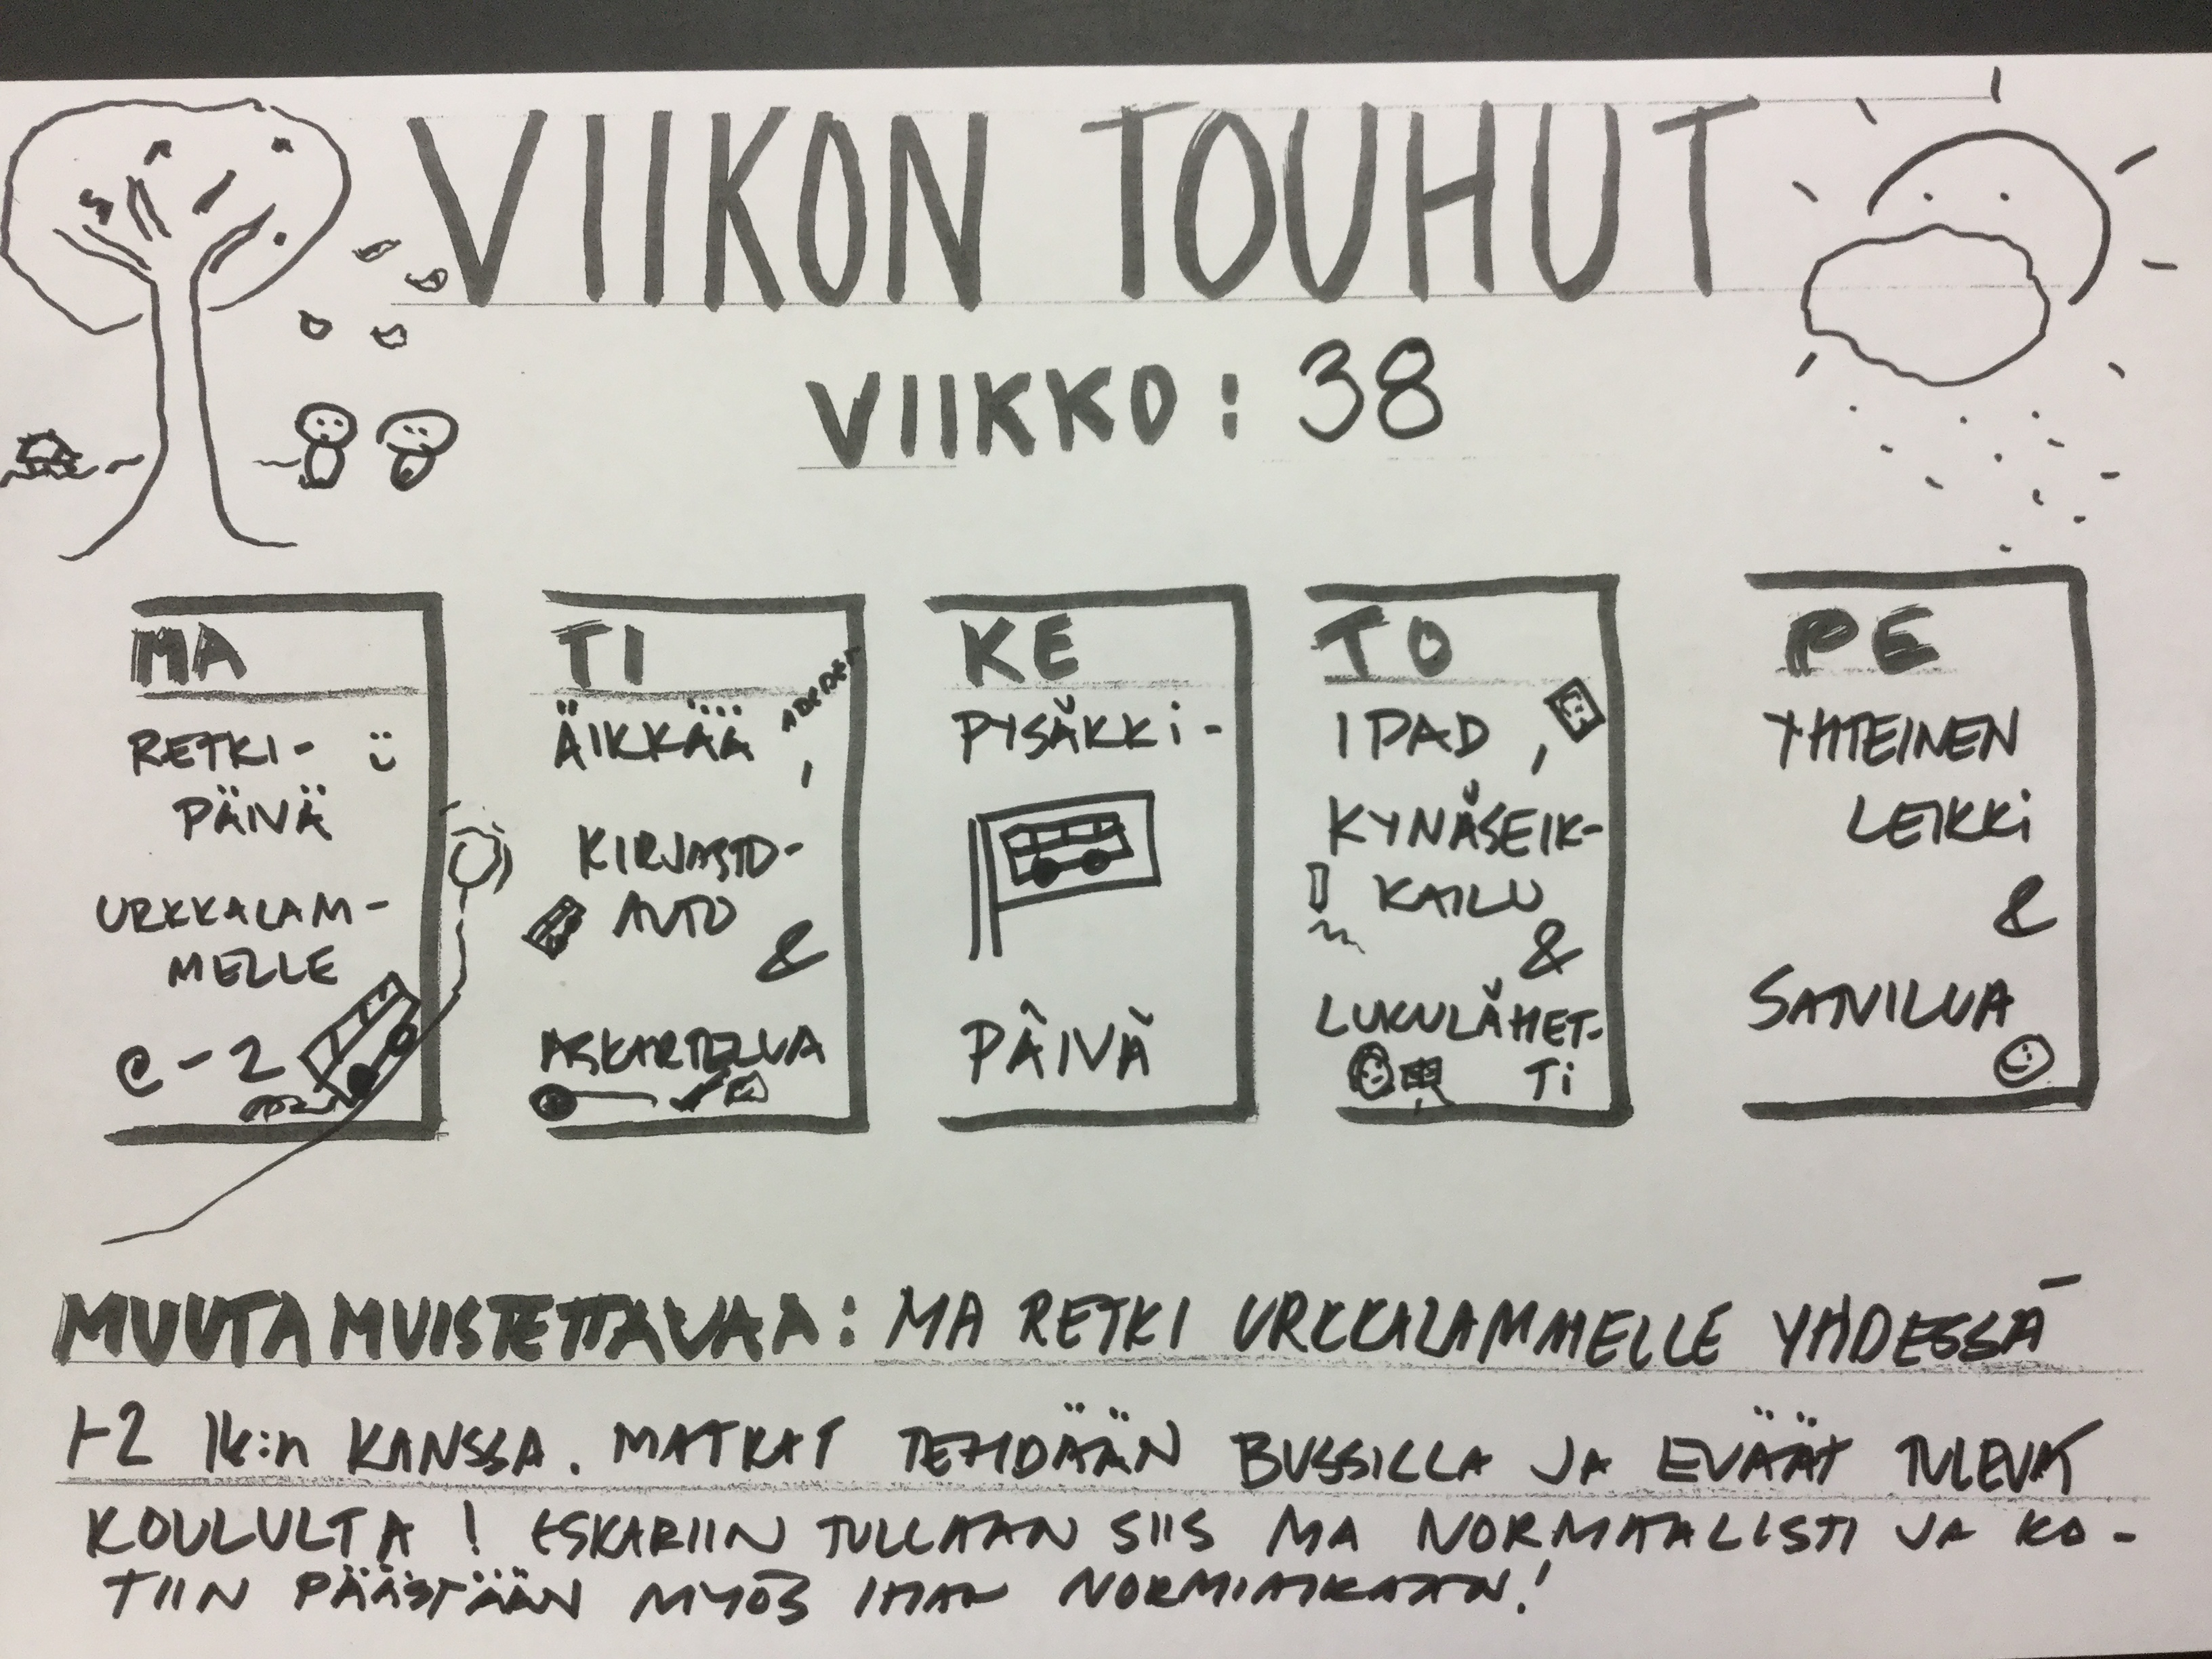 VIIKON TOUHUT
VIIKKO: 38
MA
RETKI-
PÄIVÄ
URKKALAM-
MELLE
e-2
TI
ÄIKKÄÄ,
KIRJASTO-
AUTO
&
ASKARTELUA
KE
PYSÄKKI-
PÄIVÄ
TO
IPAD,
KYNÄSEIK-
KAILU
&
LUKULÄHET-
Ti
PE
YHTEINEN
LEIKKi
&
SATUILUA
MUUTA MUISTETTAVAA: MA RETKI URKKALAMMELLE YHDESSÄ
1-2 lk:n KANSSA. MATKAT TEHDÄÄN BUSSILLA JA EVÄÄT TULEVAT
KOULULTA! ESKARIIN TULLAAN SIIS MA NORMAALISTI JA KO-
TIIN PÄÄSTÄÄN MYÖS IHAN NORMIAIKAAN!